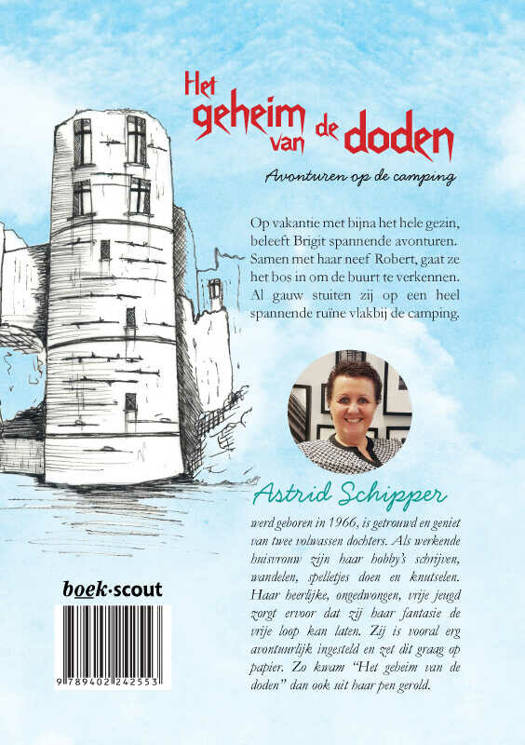 Het
geheim
van de doden
Avonturen op de camping
Op vakantie met bijna het hele gezin,
beleeft Brigit spannende avonturen.
Samen met haar neef Robert, gaat ze
het bos in om de buurt te verkennen.
Al gauw stuiten zij op een heel
spannende ruïne vlakbij de camping.
Astrid Schipper
werd geboren in 1966, is getrouwd en geniet
van twee volwassen dochters. Als werkende
huisvrouw zijn haar hobby's schrijven,
wandelen, spelletjes doen en knutselen.
Haar heerlijke, ongedwongen, vrije jeugd
zorgt ervoor dat zij haar fantasie de
vrije loop kan laten. Zij is vooral erg
avontuurlijk ingesteld en zet dit graag op
papier. Zo kwam “Het geheim van de
doden” dan ook uit haar pen gerold.
boek·scout
9 789402 242553